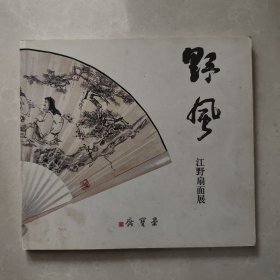 野風
江野扇面展
榮寶齋